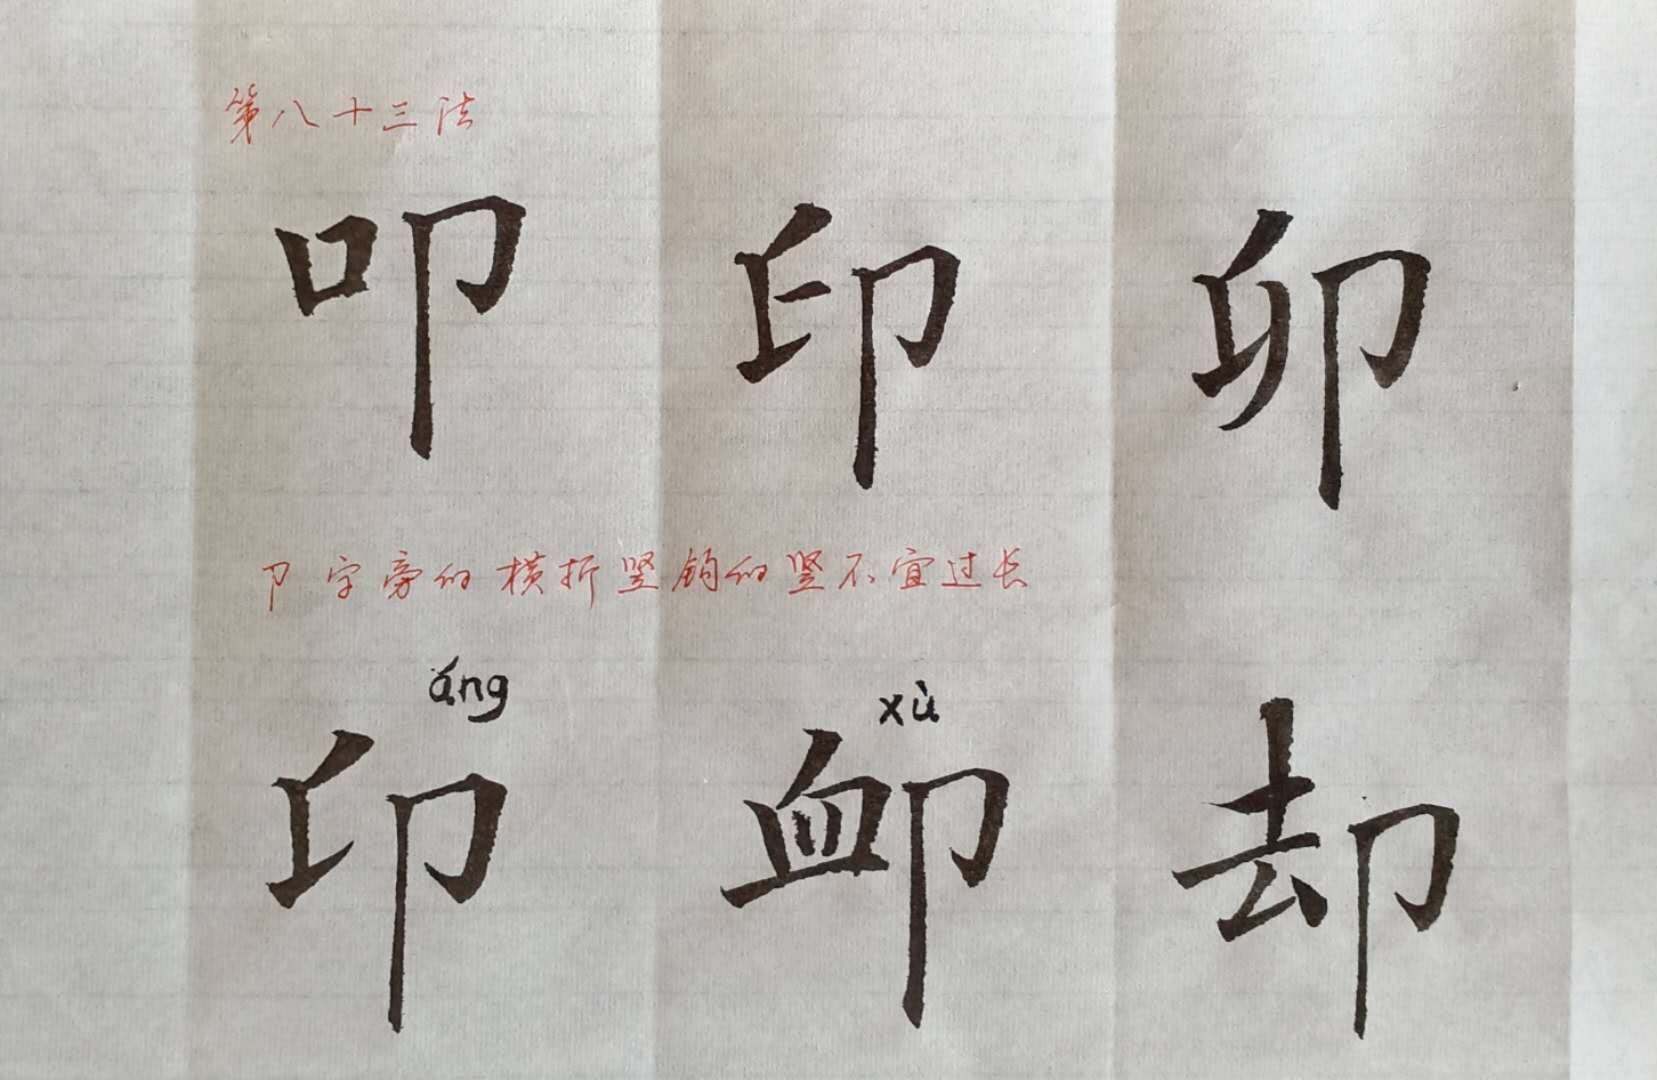 第八十三法
叩 印 卯
卩字旁的横折竖钩的竖不宜过长
áng xù
卬 卹 却